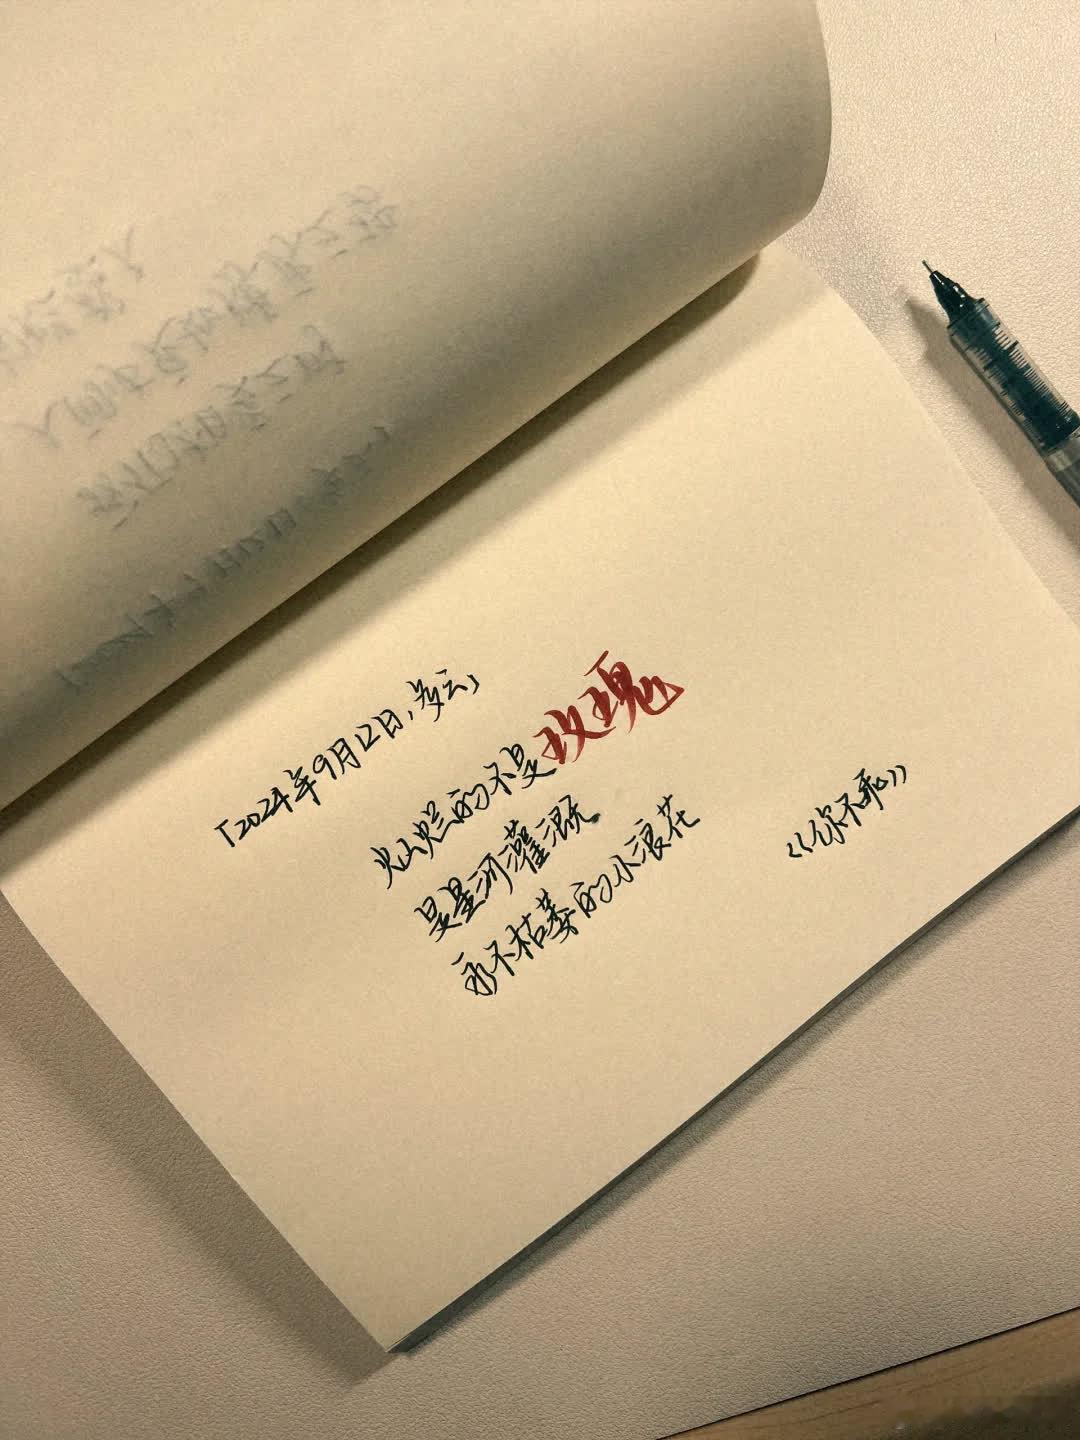 「2024年9月12日,多云」
灿烂的不是玫瑰
是星河灌溉
永不枯萎的小浪花
《你不乖》